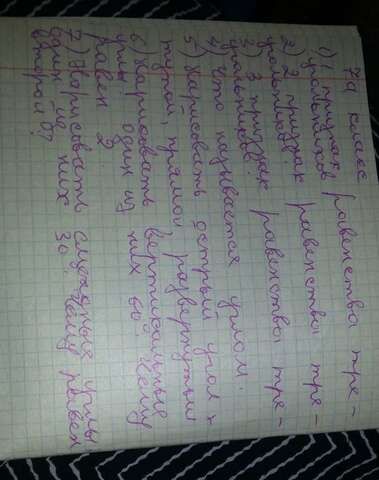 7а класс
1) 1 признак равенства тре-
угольников
2) 2 признак равенства тре-
угольников
3) 3 признак равенства тре-
угольников.
4) Что называется углом.
5) Нарисовать острый угол,
тупой, прямой, развернутый
6) Нарисовать вертикальные
углы один из них 60°. Чему
равен 2.
7) Нарисовать смежные углы,
один из них 30°. Чему равен
второй?